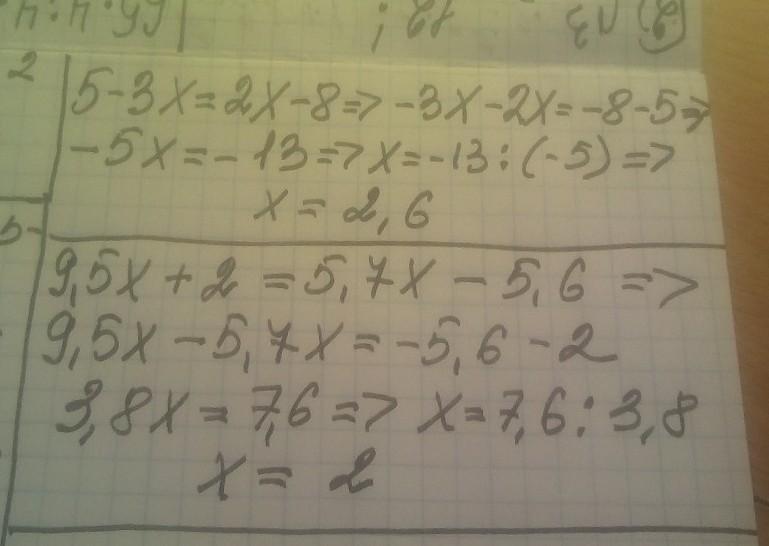 2
5-3x=2x-8=> -3x-2x=-8-5=>
-5x=-13=> x=-13:(-5)=>
x=2,6
5-
9,5x+2=5,7x-5,6 =>
9,5x-5,7x=-5,6-2
3,8x=7,6=> x=7,6:3,8
x= 2